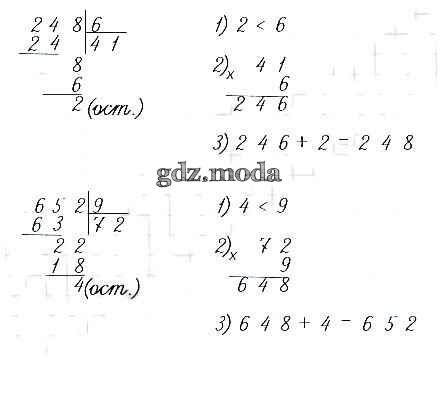 2 4 8 | 6
2 4 | 4 1
8
6
2 (ост.)
1) 2 < 6
2) x 4 1
6
2 4 6
3) 2 4 6 + 2 = 2 4 8
gdz.moda
6 5 2 | 9
6 3 | 7 2
2 2
1 8
4 (ост.)
1) 4 < 9
2) x 7 2
9
6 4 8
3) 6 4 8 + 4 = 6 5 2